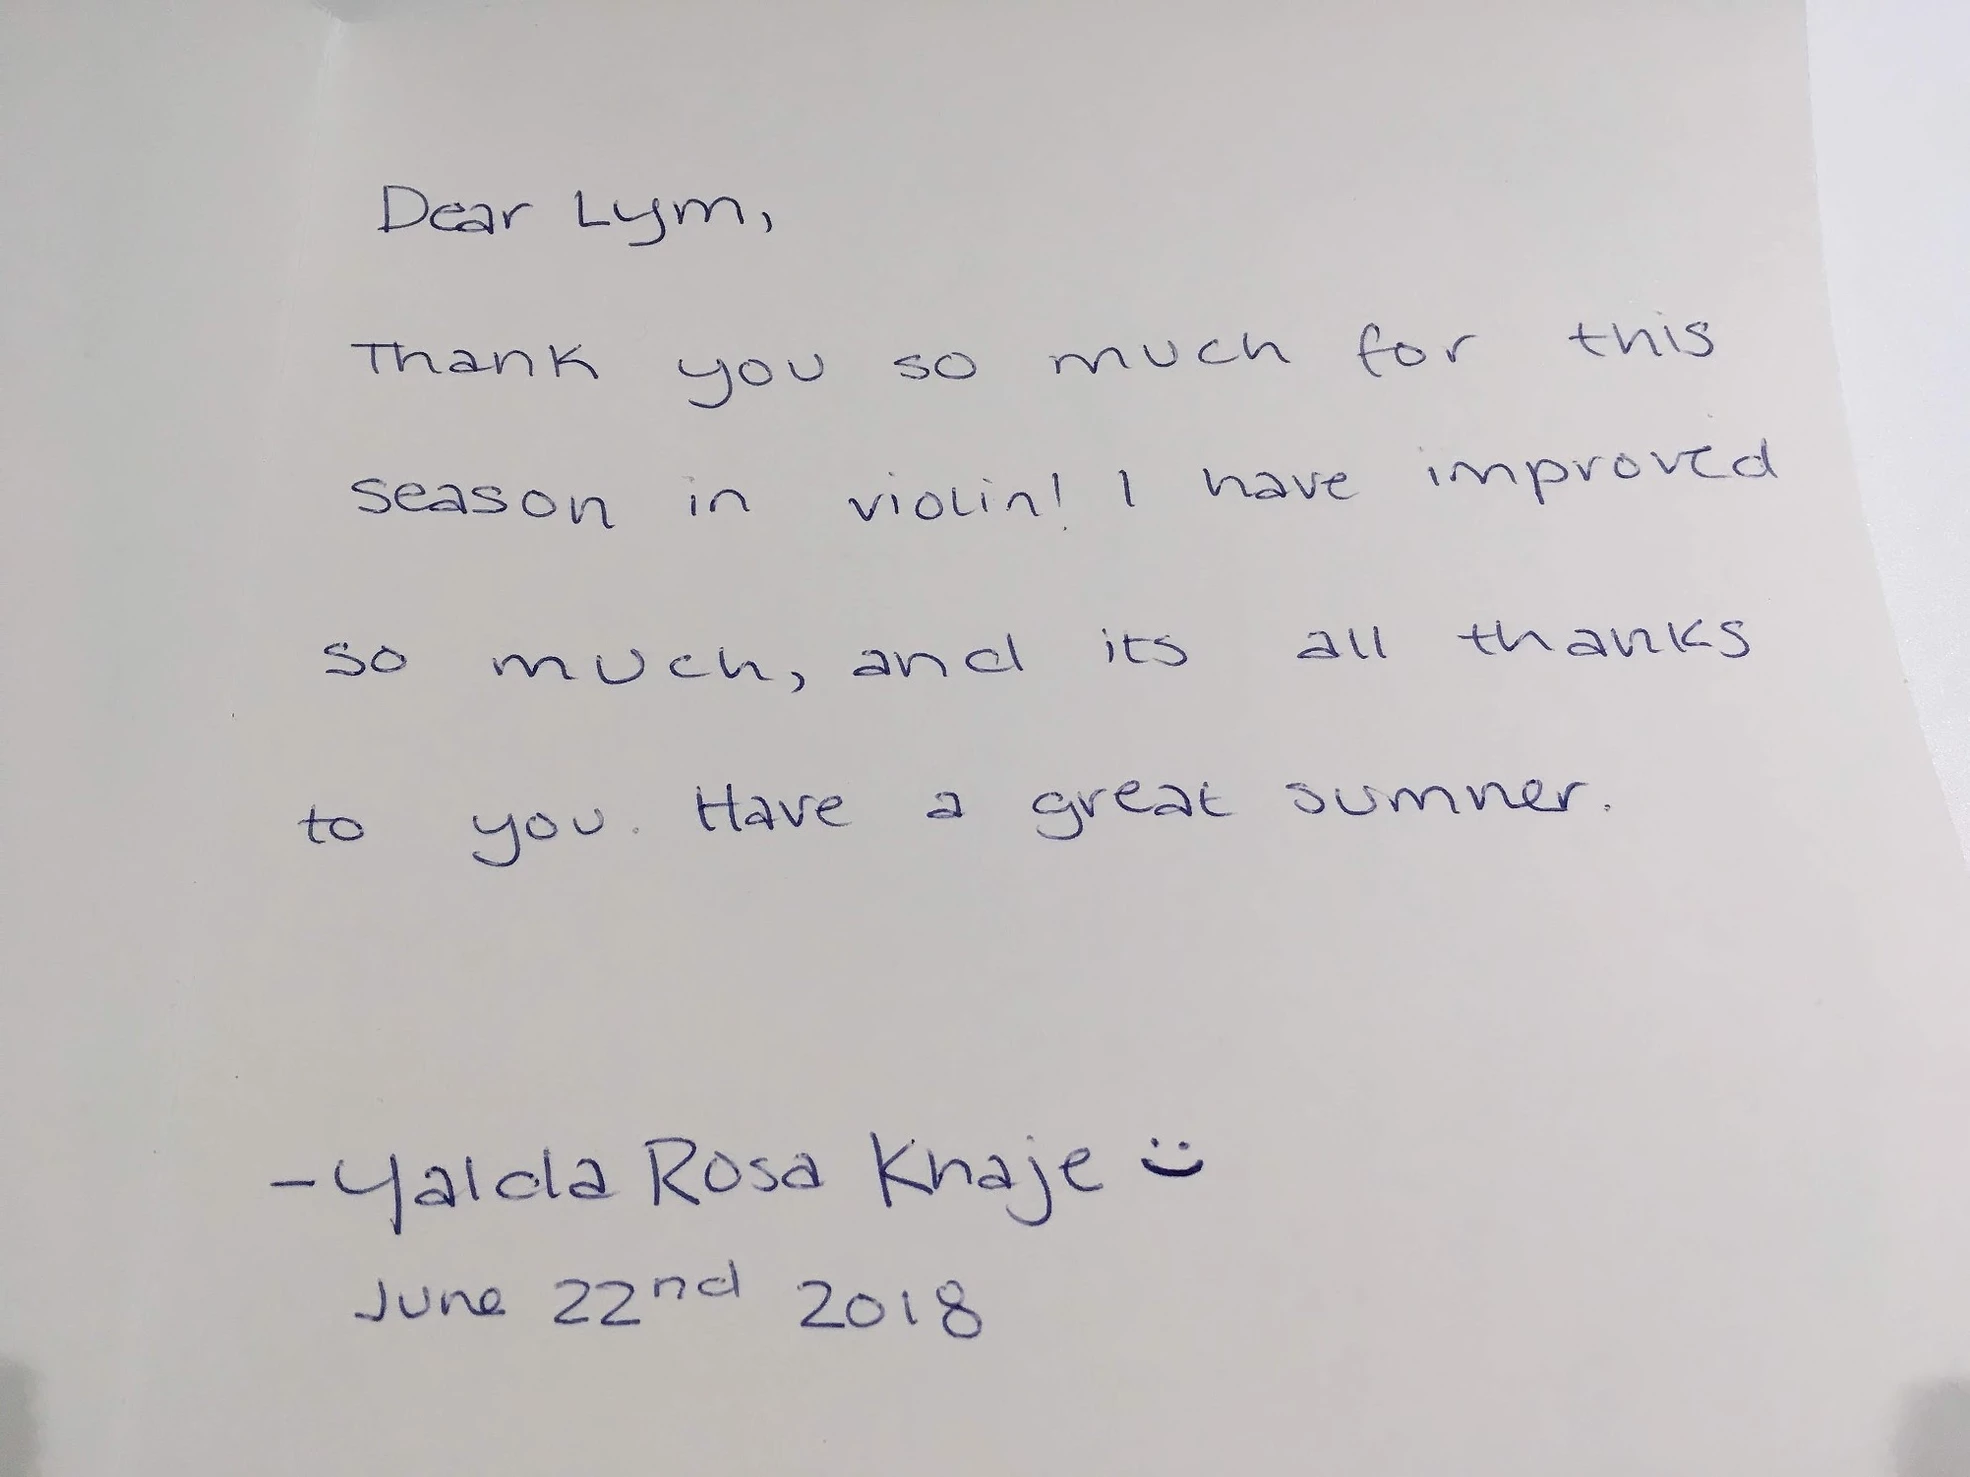 Dear Lym,
Thank you so much for this
season in violin! I have improved
so much, and its all thanks
to you. Have a great summer.
-Yalda Rosa Khaje :)
June 22nd 2018